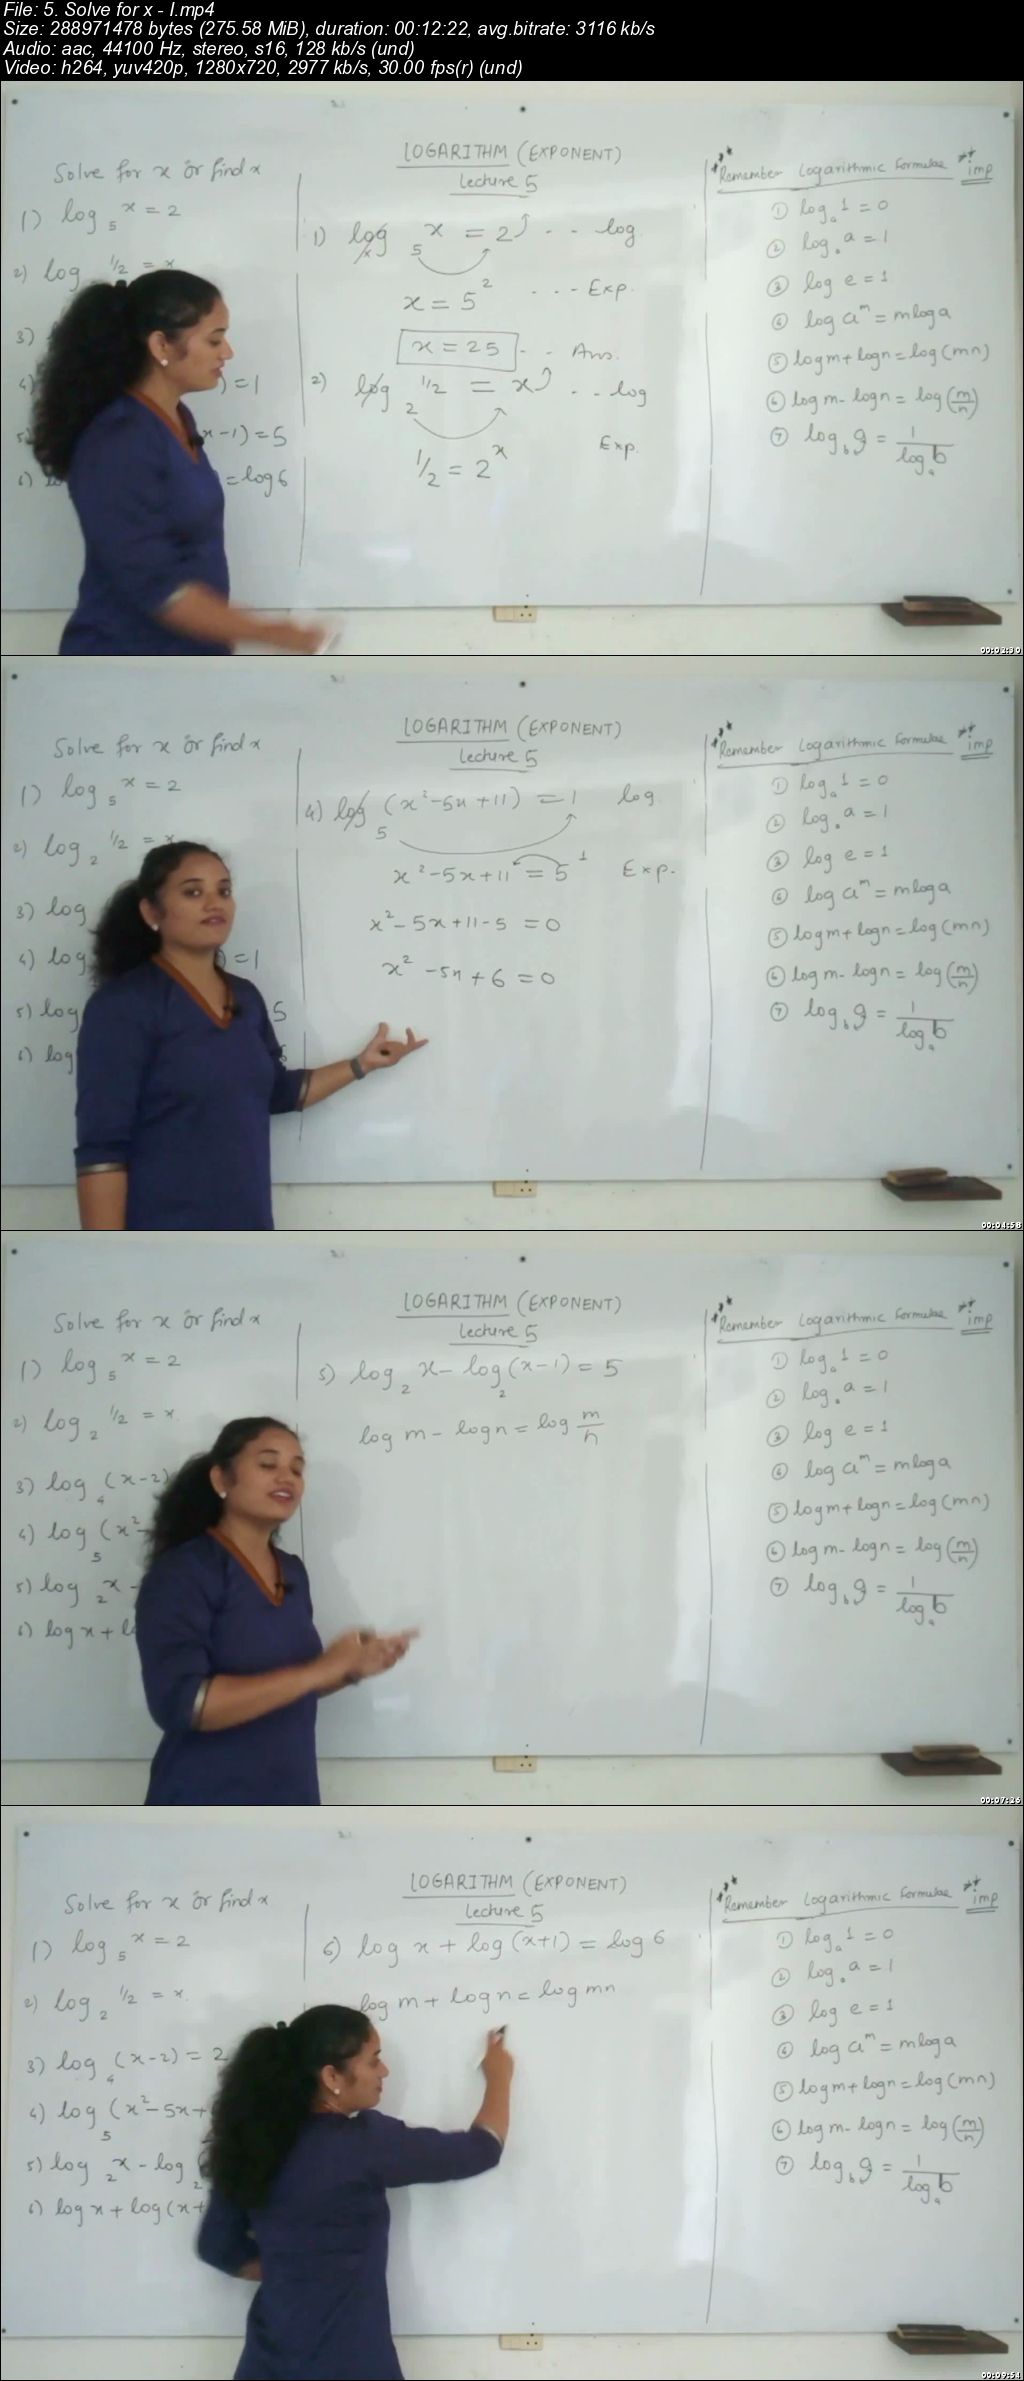 File: 5. Solve for x - I.mp4
Size: 288971478 bytes (275.58 MiB), duration: 00:12:22, avg.bitrate: 3116 kb/s
Audio: aac, 44100 Hz, stereo, s16, 128 kb/s (und)
Video: h264, yuv420p, 1280x720, 2977 kb/s, 30.00 fps(r) (und)
LOGARITHM (EXPONENT)
Lecture 5
Solve for x or find x
1) log₅ x = 2
2) log 1/2 = x
3)
4) ) = 1
5) x-1) = 5
6) = log 6
1) log₅ x = 2 - - log
x = 5² - - - Exp.
x = 25 - - Ans.
2) log₂ 1/2 = x - - log
Exp.
1/2 = 2ˣ
Remember Logarithmic Formulae imp
① logₐ 1 = 0
② logₐ a = 1
③ log e = 1
④ log aᵐ = m log a
⑤ log m + log n = log (mn)
⑥ log m - log n = log (m/n)
⑦ log_b a = 1/logₐ b
00:02:30
LOGARITHM (EXPONENT)
Lecture 5
Solve for x or find x
1) log₅ x = 2
2) log₂ 1/2 = x
3) log
4) log ) = 1
5) log 5
6) log 6
4) log₅ (x²-5x+11) = 1 log
x²-5x+11 = 5¹ Exp.
x²-5x+11-5 = 0
x²-5x+6 = 0
Remember Logarithmic Formulae imp
① logₐ 1 = 0
② logₐ a = 1
③ log e = 1
④ log aᵐ = m log a
⑤ log m + log n = log (mn)
⑥ log m - log n = log (m/n)
⑦ log_b a = 1/logₐ b
00:04:58
LOGARITHM (EXPONENT)
Lecture 5
Solve for x or find x
1) log₅ x = 2
2) log₂ 1/2 = x
3) log₄ (x-2)
4) log₅ (x²-
5) log₂ x -
6) log x + lo
5) log₂ x - log₂ (x-1) = 5
log m - log n = log m/n
Remember Logarithmic Formulae imp
① logₐ 1 = 0
② logₐ a = 1
③ log e = 1
④ log aᵐ = m log a
⑤ log m + log n = log (mn)
⑥ log m - log n = log (m/n)
⑦ log_b a = 1/logₐ b
00:07:26
LOGARITHM (EXPONENT)
Lecture 5
Solve for x or find x
1) log₅ x = 2
2) log₂ 1/2 = x
3) log₄ (x-2) = 2
4) log₅ (x²-5x+
5) log₂ x - log₂ (
6) log x + log (x+
6) log x + log (x+1) = log 6
log m + log n = log mn
Remember Logarithmic Formulae imp
① logₐ 1 = 0
② logₐ a = 1
③ log e = 1
④ log aᵐ = m log a
⑤ log m + log n = log (mn)
⑥ log m - log n = log (m/n)
⑦ log_b a = 1/logₐ b
00:09:54